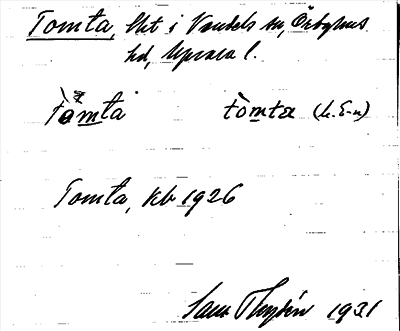 Tomta, Skt i Vendels sn, Örbyhus
hd, Uppsala l.
tòmta tòmta (L. E-n)
Tomta, kb 1926
1931